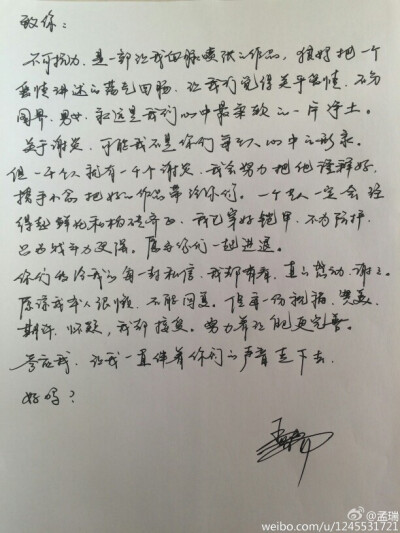 致你：
不可抗力，是一部让我血脉喷张之作品，狠好把一个
爱情讲述的荡气回肠，让我们觉得关乎爱情，不分
国界，男女，永远是我们心中最柔软的一片净土。
关于谢炎，可能我不是你们每个人心中之形象，
但一千个人就有一千个谢炎，我会努力把他诠释好，
携手小念把好的作品带给你们。一个艺人一定会经
得起鲜花和
我已穿好铠甲，不为防护，
只为战斗力更强。愿与你们一起进退。
你们给我的每一封私信，我都有看，真的感动，谢谢。
原谅我本人很懒，不能回复。但每一份祝福，赞美，
期许，怀疑，我都接受。努力着让
更完善。
答应我，让我一直伴着你们的声音走下去，
好吗？
@孟瑞
weibo.com/u/1245531721